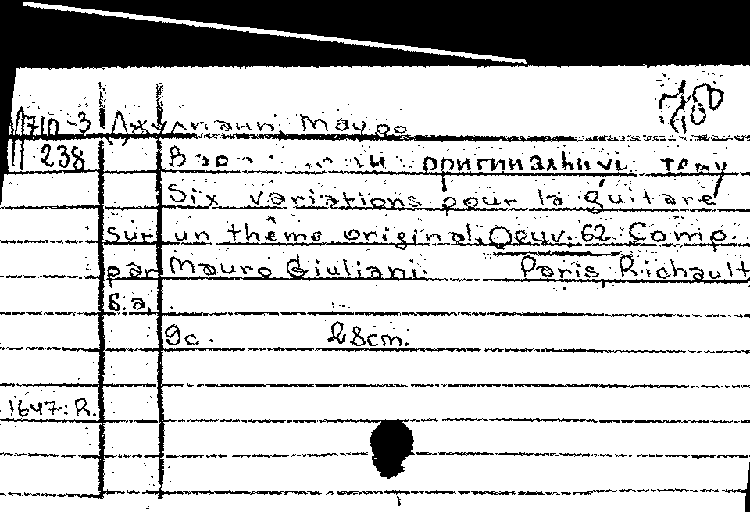 М710-3 Джулиани, Мауро
238 оригинальную тему
Six variations pour la guitare
sur un thême original. Oeuv. 62. Comp.
par Mauro Giuliani. Paris, Richault,
s.a.
9c. 28cm.
1647:R.